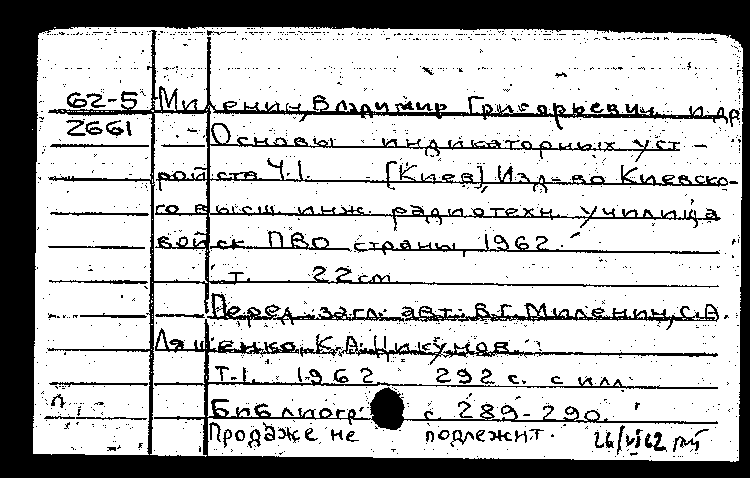 62-5 Миленин, Владимир Григорьевич и др
2661 - Основы индикаторных уст-
ройств Ч.1. [Киев], Изд-во Киевско-
го высш. инж. радиотехн. училища
войск ПВО страны, 1962.
т. 22 см
Перед загл. авт.: В.Г. Миленин, С.А.
Ляшенко, К.А. Цикунов.
Т.1. 1962 292 с. с илл.
Библиогр. с. 289-290.
Продаже не подлежит.